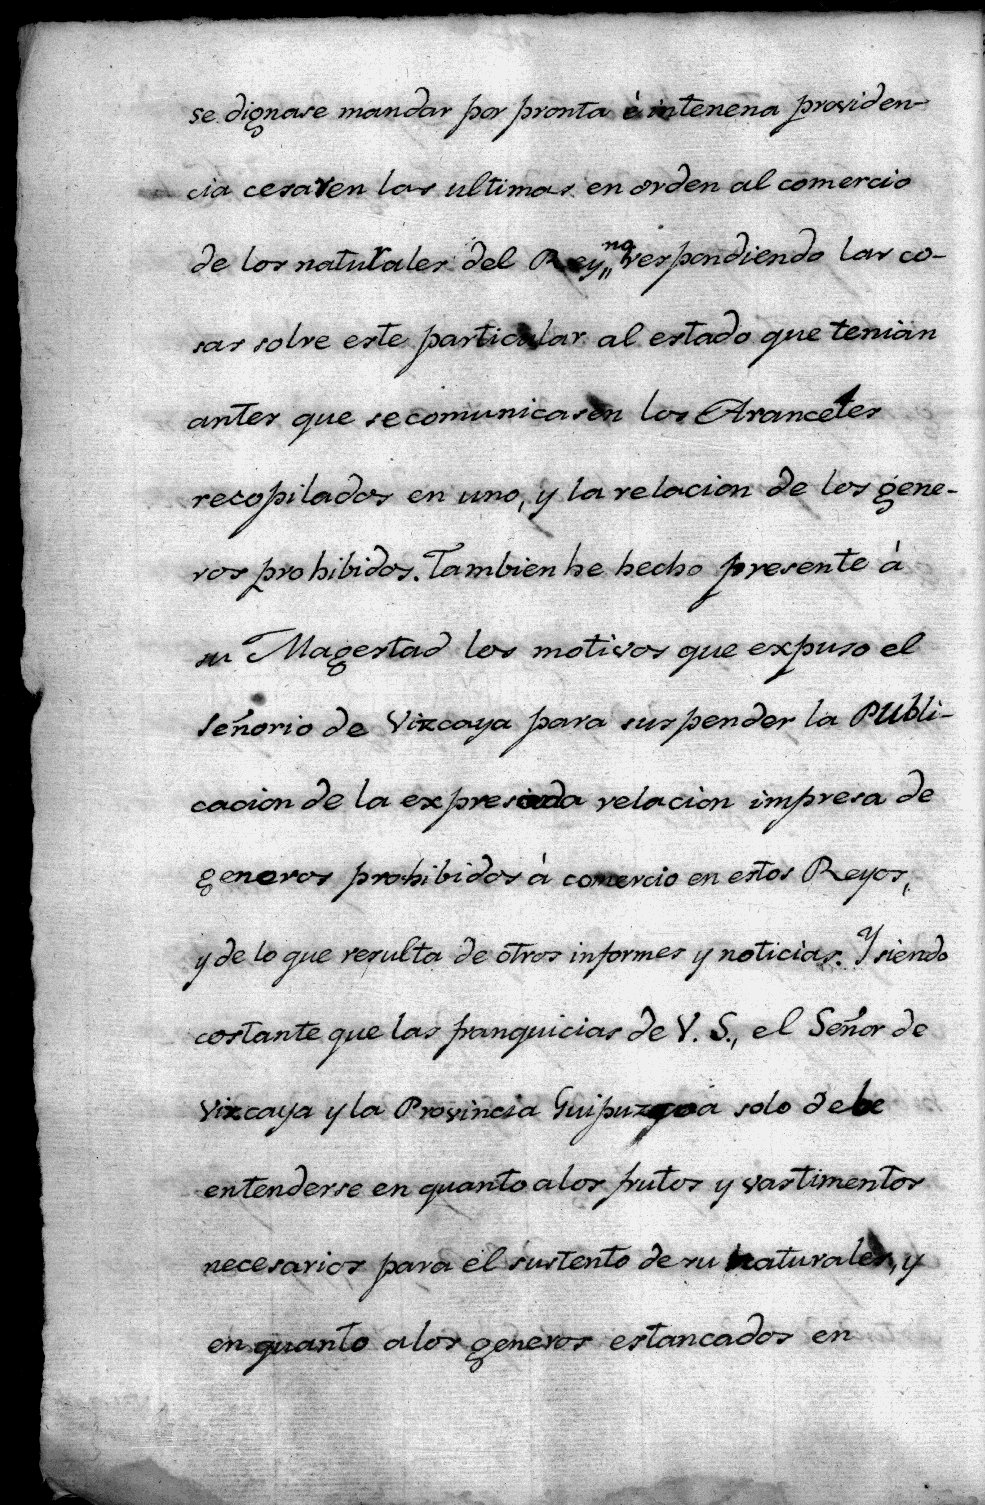 se dignase mandar por pronta é intenena providen-
cia cesaren las ultimas en orden al comercio
de los naturales del Reyno respondiendo las co-
sas solre este particular al estado que tenian
antes que se comunicasen los Aranceles
recopilados en uno, y la relacion de los gene-
ros prohibidos. Tambien he hecho presente á
su Magestad los motivos que expuso el
Señorio de Vizcaya para suspender la Publi-
cacion de la expresada relacion impresa de
generos prohibidos á comercio en estos Reyos,
y de lo que resulta de otros informes y noticias. Y siendo
costante que las franquicias de V. S., el Señor de
Vizcaya y la Provincia Guipuzgoa solo debe
entenderse en quanto a los frutos y vastimentos
necesarios para el sustento de su naturales, y
en quanto a los generos estancados en